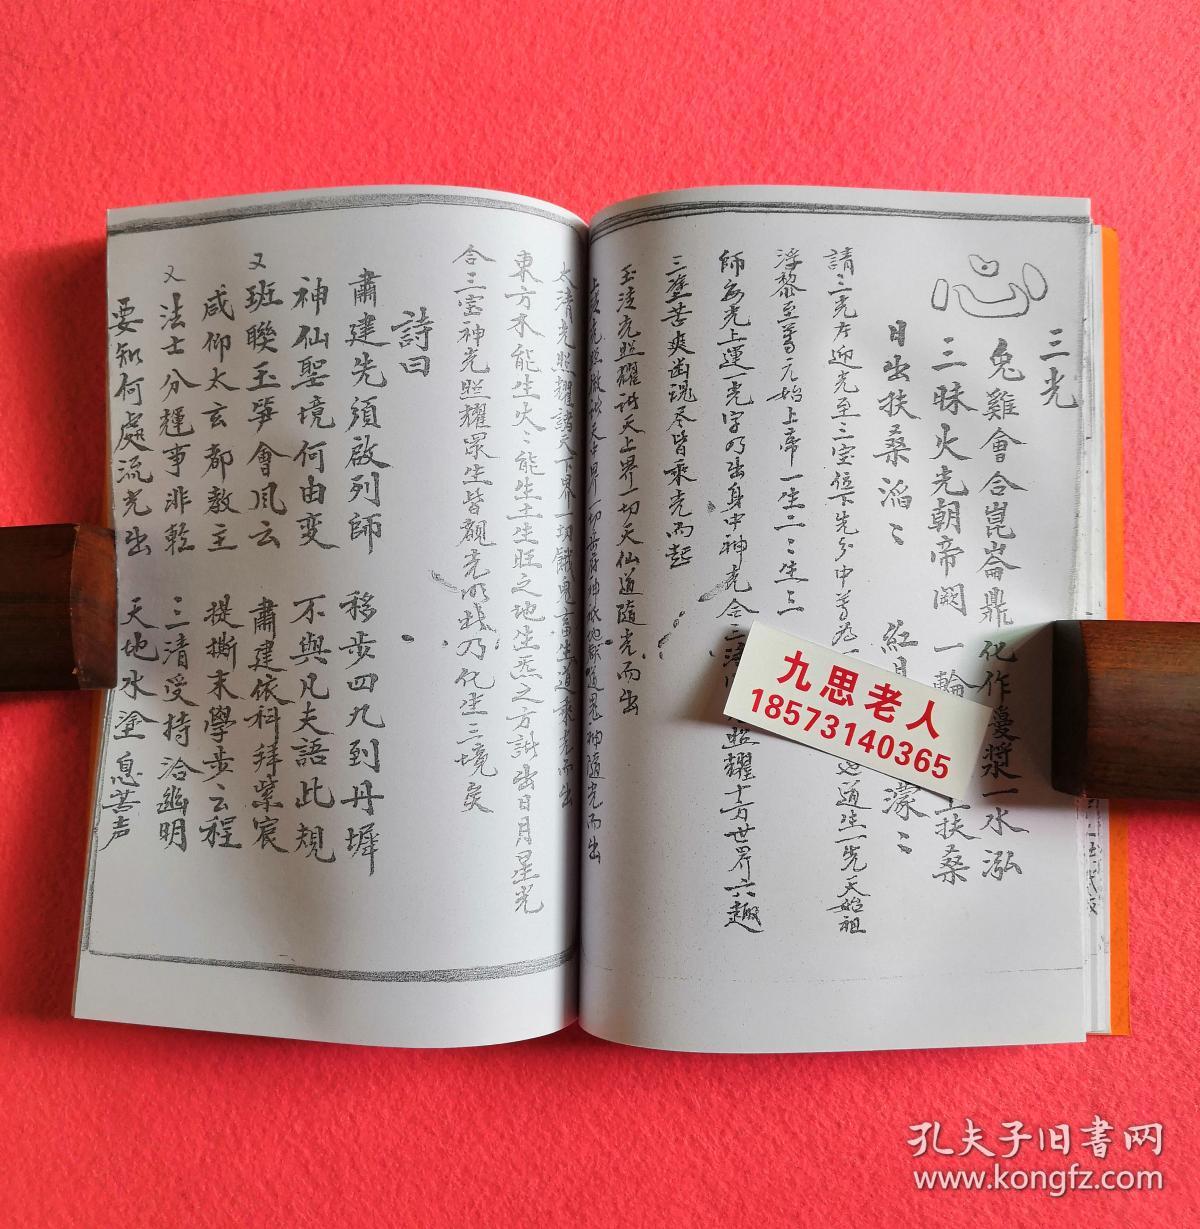 三光
兔雞會合崑崙鼎 化作 漿一水泓
三昧火光朝帝闕 一輪 上扶桑
日出扶桑滔〻 紅 濛〻
請三光左迎光至三宝位下先 中尊為一 道生一先天始祖
浮黎至尊元始上帝一生二〻生三
師 光上運一光字乃出身中神光合三清 照耀十方世界六趣
三塗苦爽幽魂尽皆乘光而起
玉清光照耀諸天上界一切天仙道隨光而出
上清光照 天中界一切 道 神隨光而出
太清光照耀諸天下界一切餓鬼畜生道乘光而出
東方木能生火〻能生土生旺之地生炁之方訣出日月星光
合三宝神光照耀眾生皆覩光明 乃化生三境矣
詩曰
肅建先須啟列師 移步四九到丹墀
神仙聖境何由变 不與凡夫語此規
又班聯玉笋會風云 肅建依科拜紫宸
咸仰太玄都教主 提撕末學步云程
又法士分輝事非輕 三清受持洽幽明
要知何處流光出 天地水塗息苦声
九思老人
18573140365
孔夫子旧书网
www.kongfz.com